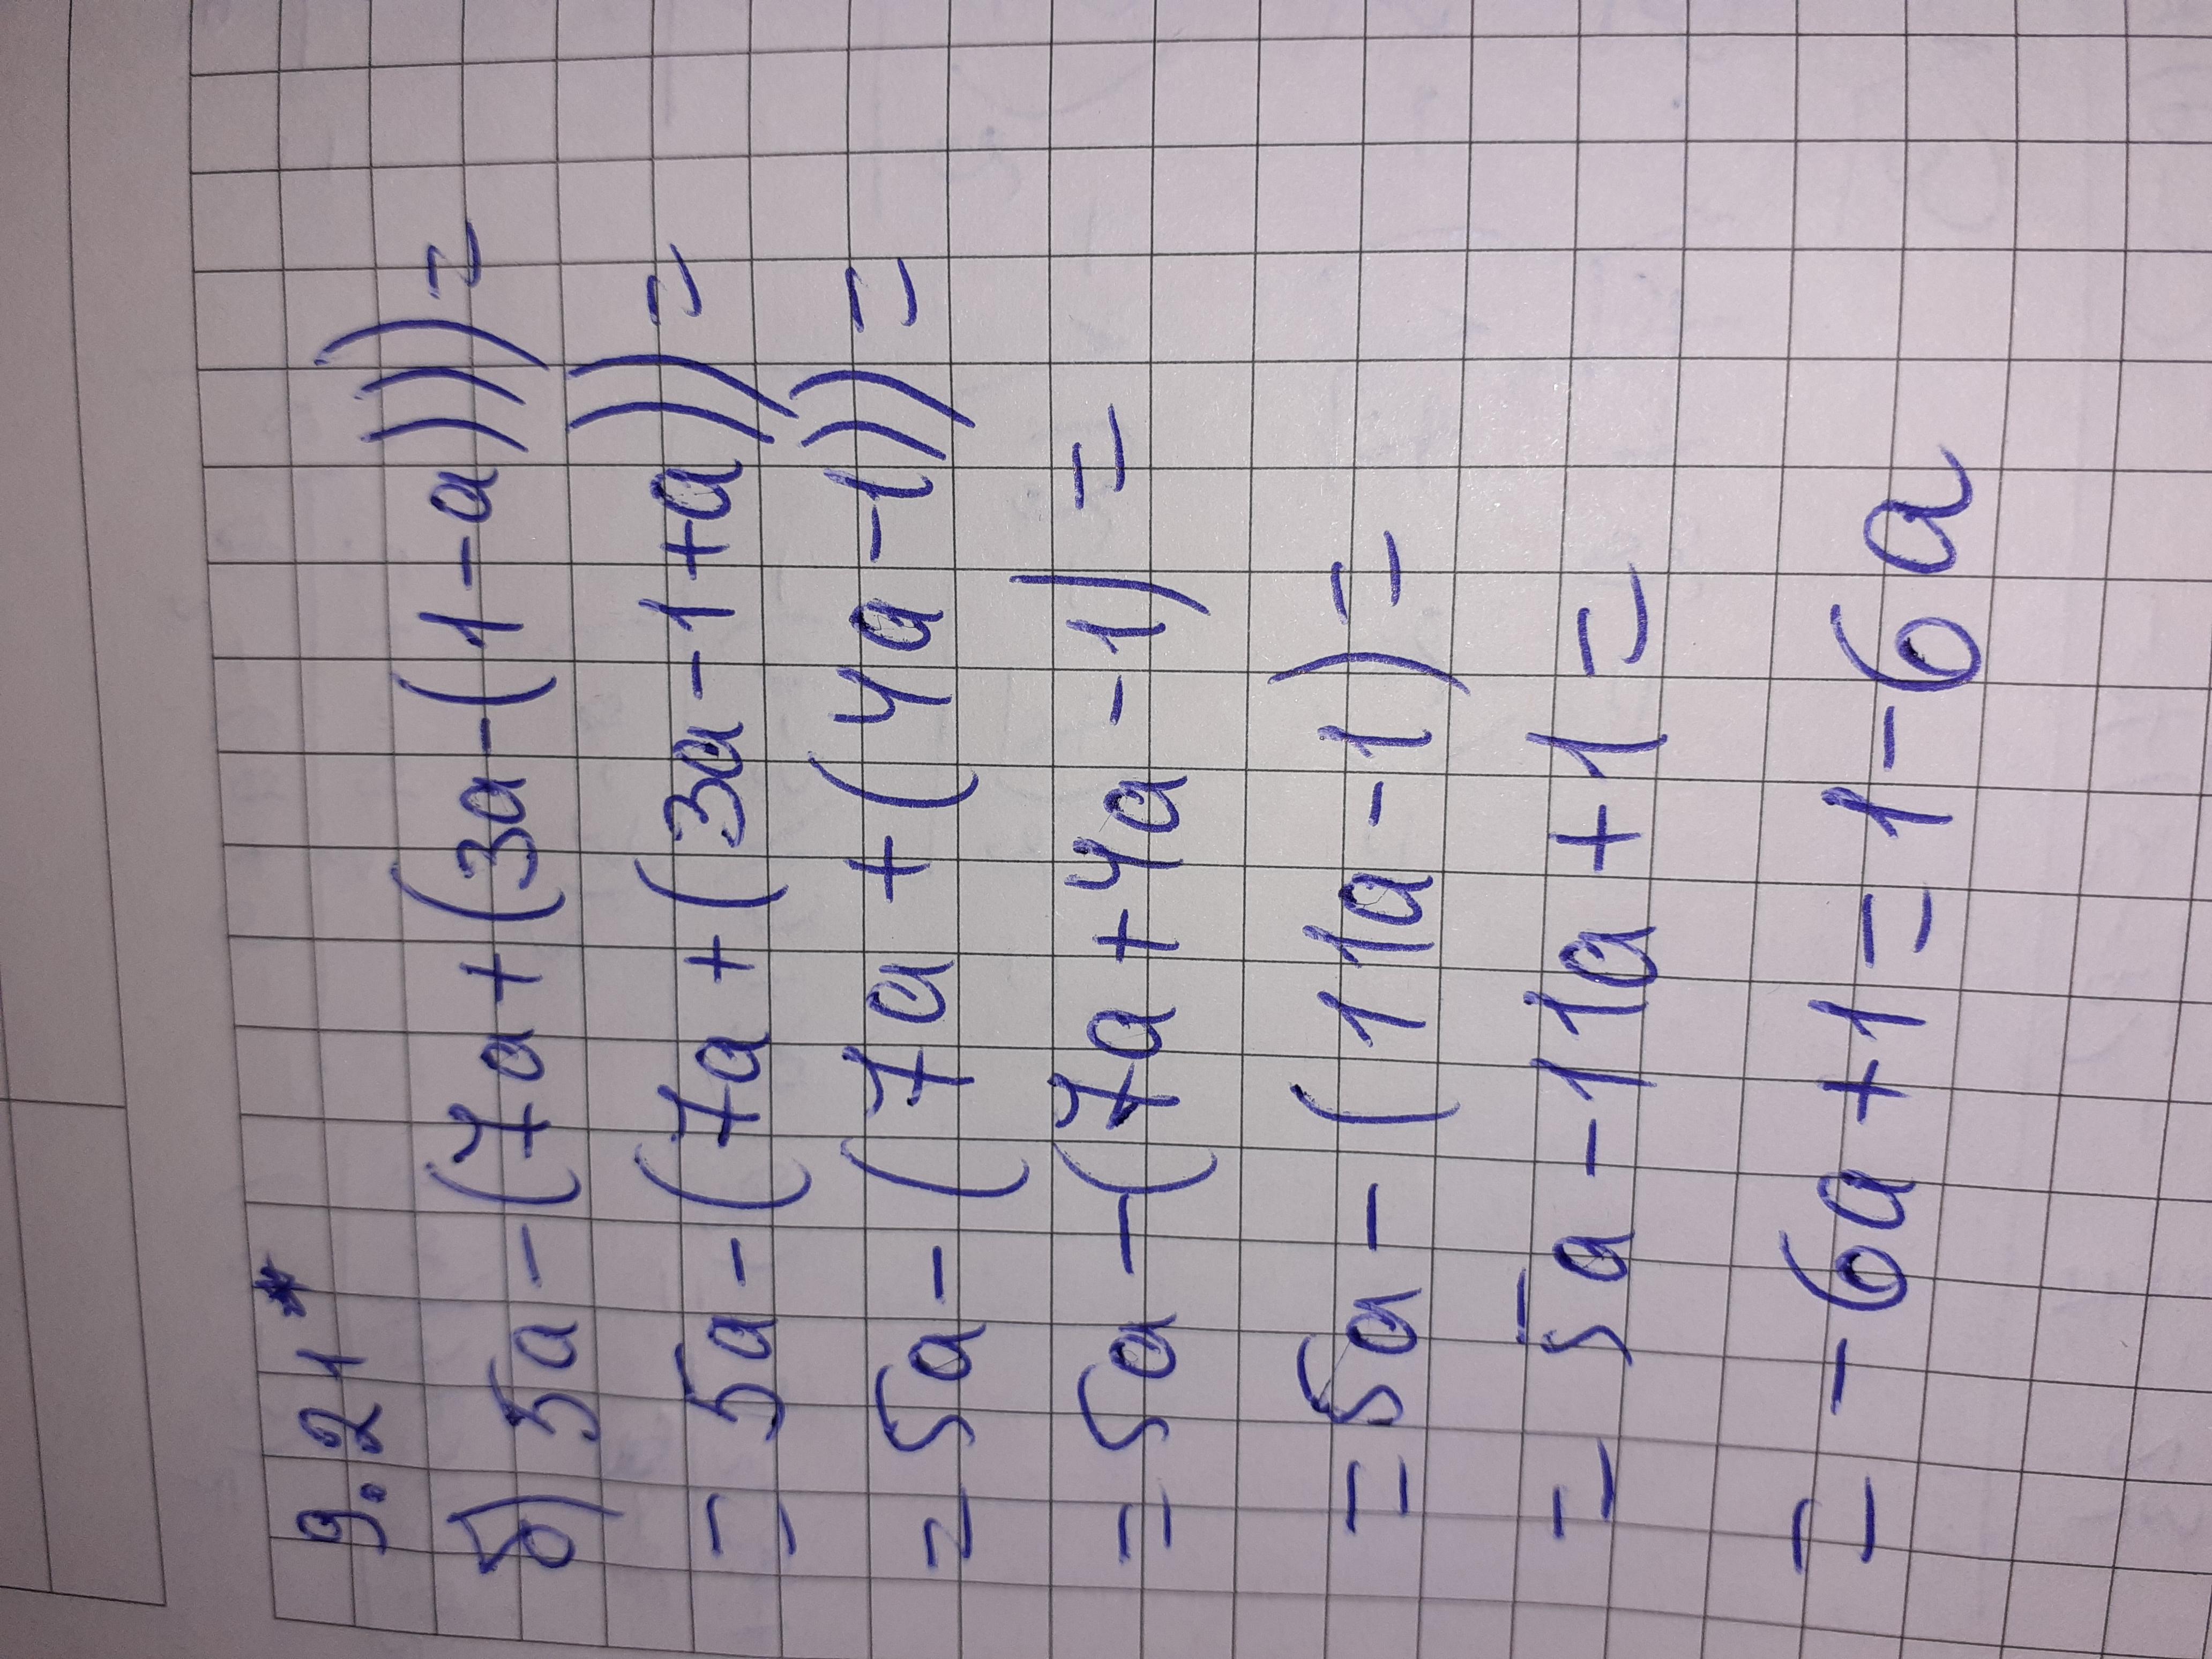 9.21*
б) 5a-(7a+(3a-(1-a)))=
= 5a-(7a+(3a-1+a))=
= 5a-(7a+(4a-1))=
= 5a-(7a+4a-1)=
= 5a-(11a-1)=
= 5a-11a+1=
= -6a+1=1-6a